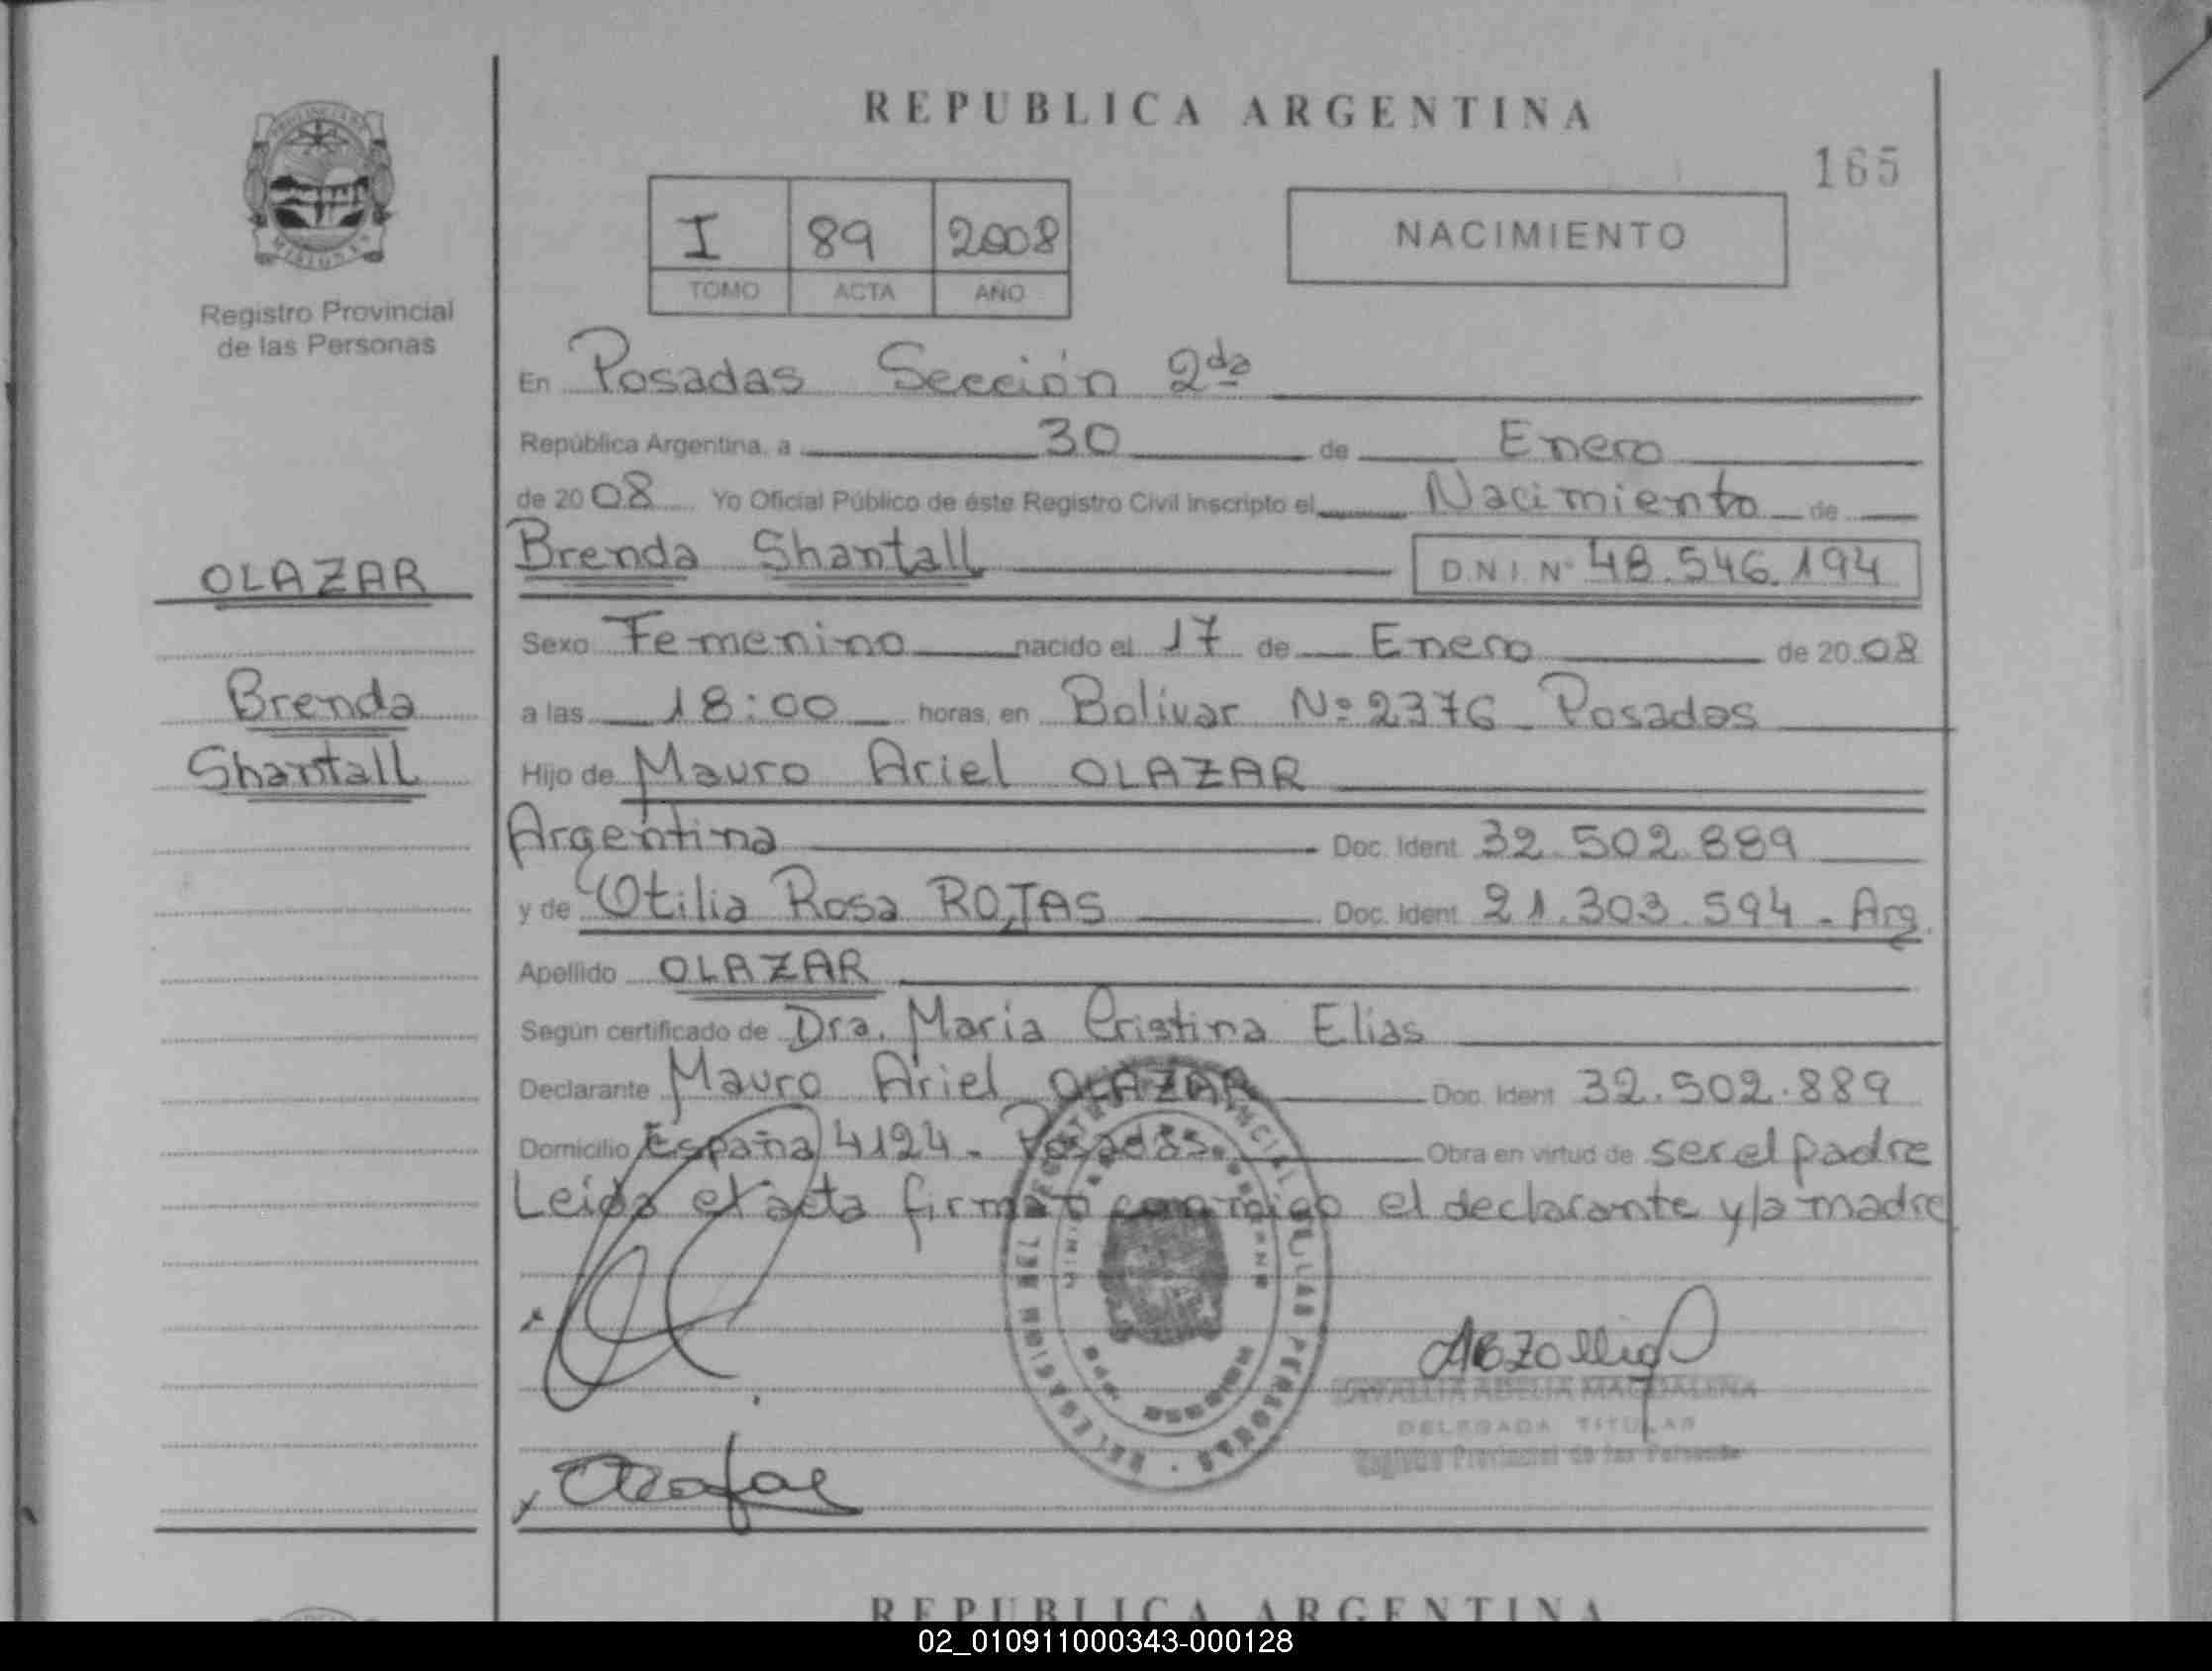 REPUBLICA ARGENTINA
165
I 89 2008
TOMO ACTA AÑO
NACIMIENTO
Registro Provincial
de las Personas
En Posadas Sección 2da
República Argentina, a 30 de Enero
de 2008 Yo Oficial Público de éste Registro Civil Inscripto el Nacimiento de
Brenda Shantall D.N.I. Nº 48.546.194
OLAZAR
Sexo Femenino nacido el 17 de Enero de 2008
Brenda
a las 18:00 horas, en Bolivar Nº 2376 Posadas
Shantall
Hijo de Mauro Ariel OLAZAR
Argentina Doc. Ident 32.502.889
y de Otilia Rosa ROJAS Doc. Ident 21.303.594 - Arg.
Apellido OLAZAR
Según certificado de Dra. Maria Cristina Elias
Declarante Mauro Ariel OLAZAR Doc. Ident 32.502.889
Domicilio España 4124 - Posadas. Obra en virtud de ser el padre
Leida el acta firman conmigo el declarante y la madre
ADELIA MAGDALENA
DELEGADA TITULAR
Registro Provincial de las Personas
REPUBLICA ARGENTINA
02_010911000343-000128